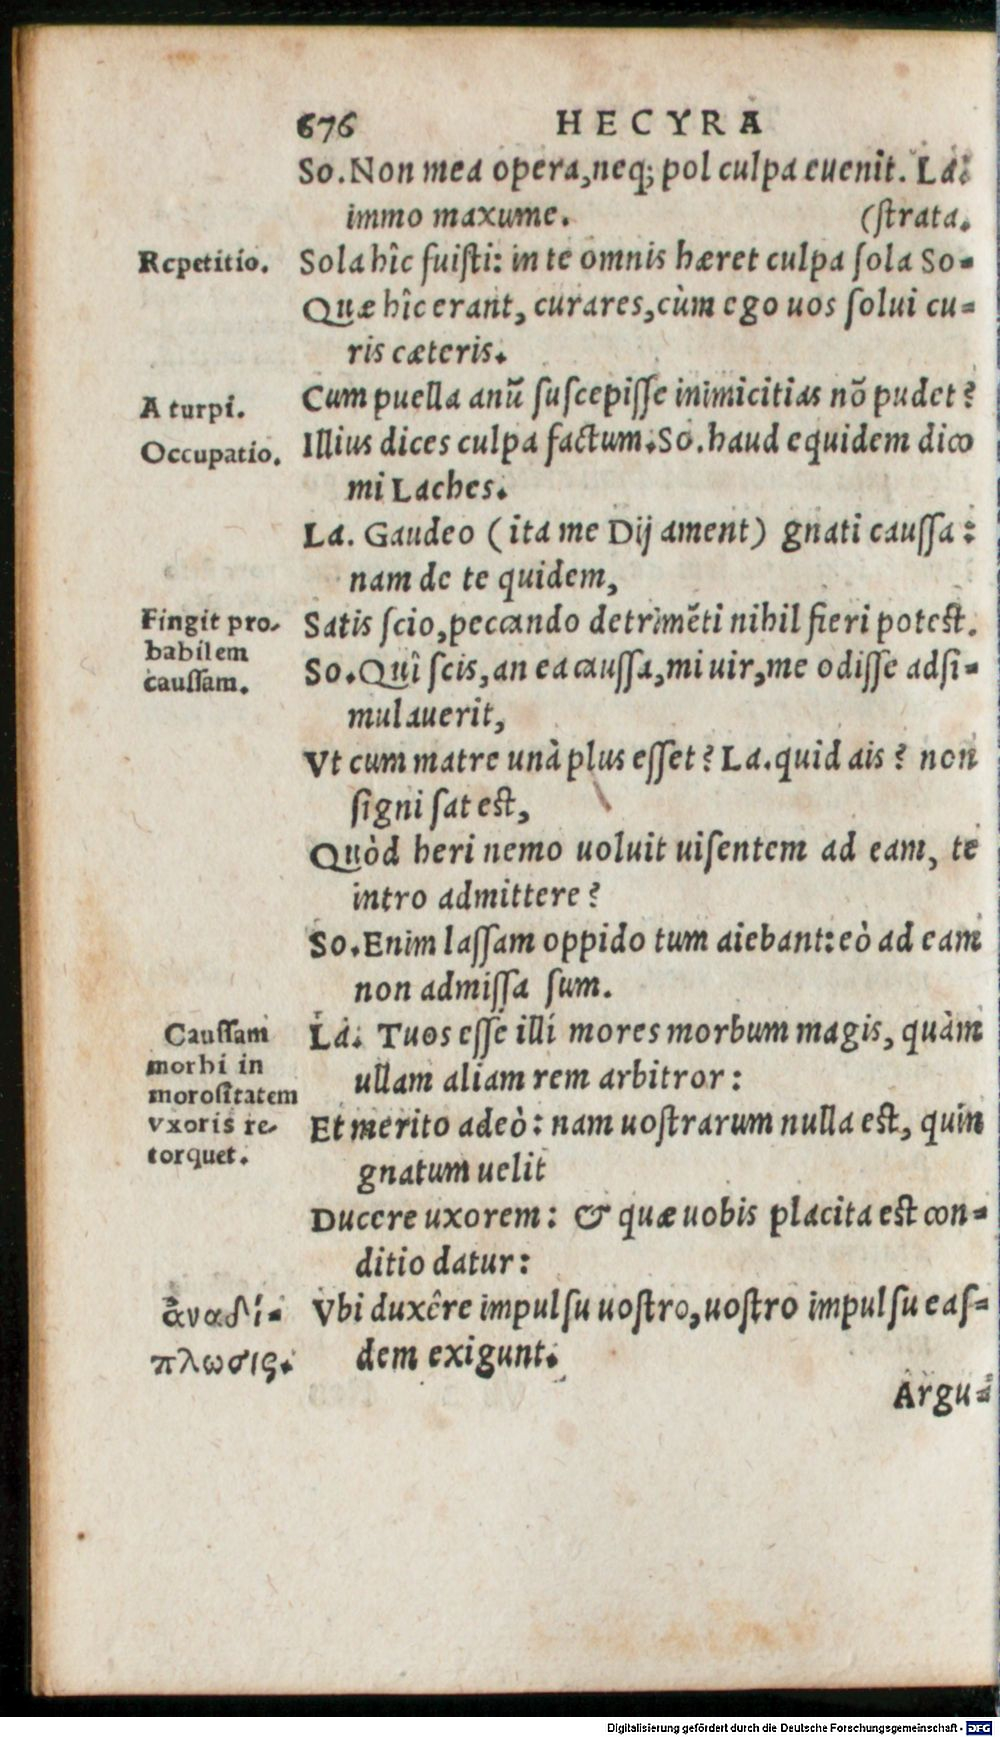 676 HECYRA
So. Non mea opera, neq; pol culpa euenit. La.
immo maxume. (strata.
Repetitio.
Sola hîc fuisti: in te omnis hæret culpa sola So-
Quæ hîc erant, curares, cùm ego uos solui cu-
ris cæteris.
A turpi.
Cum puella anũ suscepisse inimicitias nõ pudet?
Occupatio.
Illius dices culpa factum. So. haud equidem dico
mi Laches.
La. Gaudeo (ita me Dij ament) gnati caussa:
nam de te quidem,
Fingit pro-
babilem
caussam.
Satis scio, peccando detrimẽti nihil fieri potest.
So. Quî scis, an ea caussa, mi uir, me odisse adsi-
mulauerit,
Vt cum matre unà plus esset? La. quid ais? non
signi sat est,
Quòd heri nemo uoluit uisentem ad eam, te
intro admittere?
So. Enim lassam oppido tum aiebant: eò ad eam
non admissa sum.
Caussam
morbi in
morositatem
vxoris re-
torquet.
La. Tuos esse illi mores morbum magis, quàm
ullam aliam rem arbitror:
Et merito adeò: nam uostrarum nulla est, quin
gnatum uelit
Ducere uxorem: & quæ uobis placita est con-
ditio datur:
ἀναδί-
πλωσις.
Vbi duxêre impulsu uostro, uostro impulsu eas-
dem exigunt.
Argu-
Digitalisierung gefördert durch die Deutsche Forschungsgemeinschaft - DFG